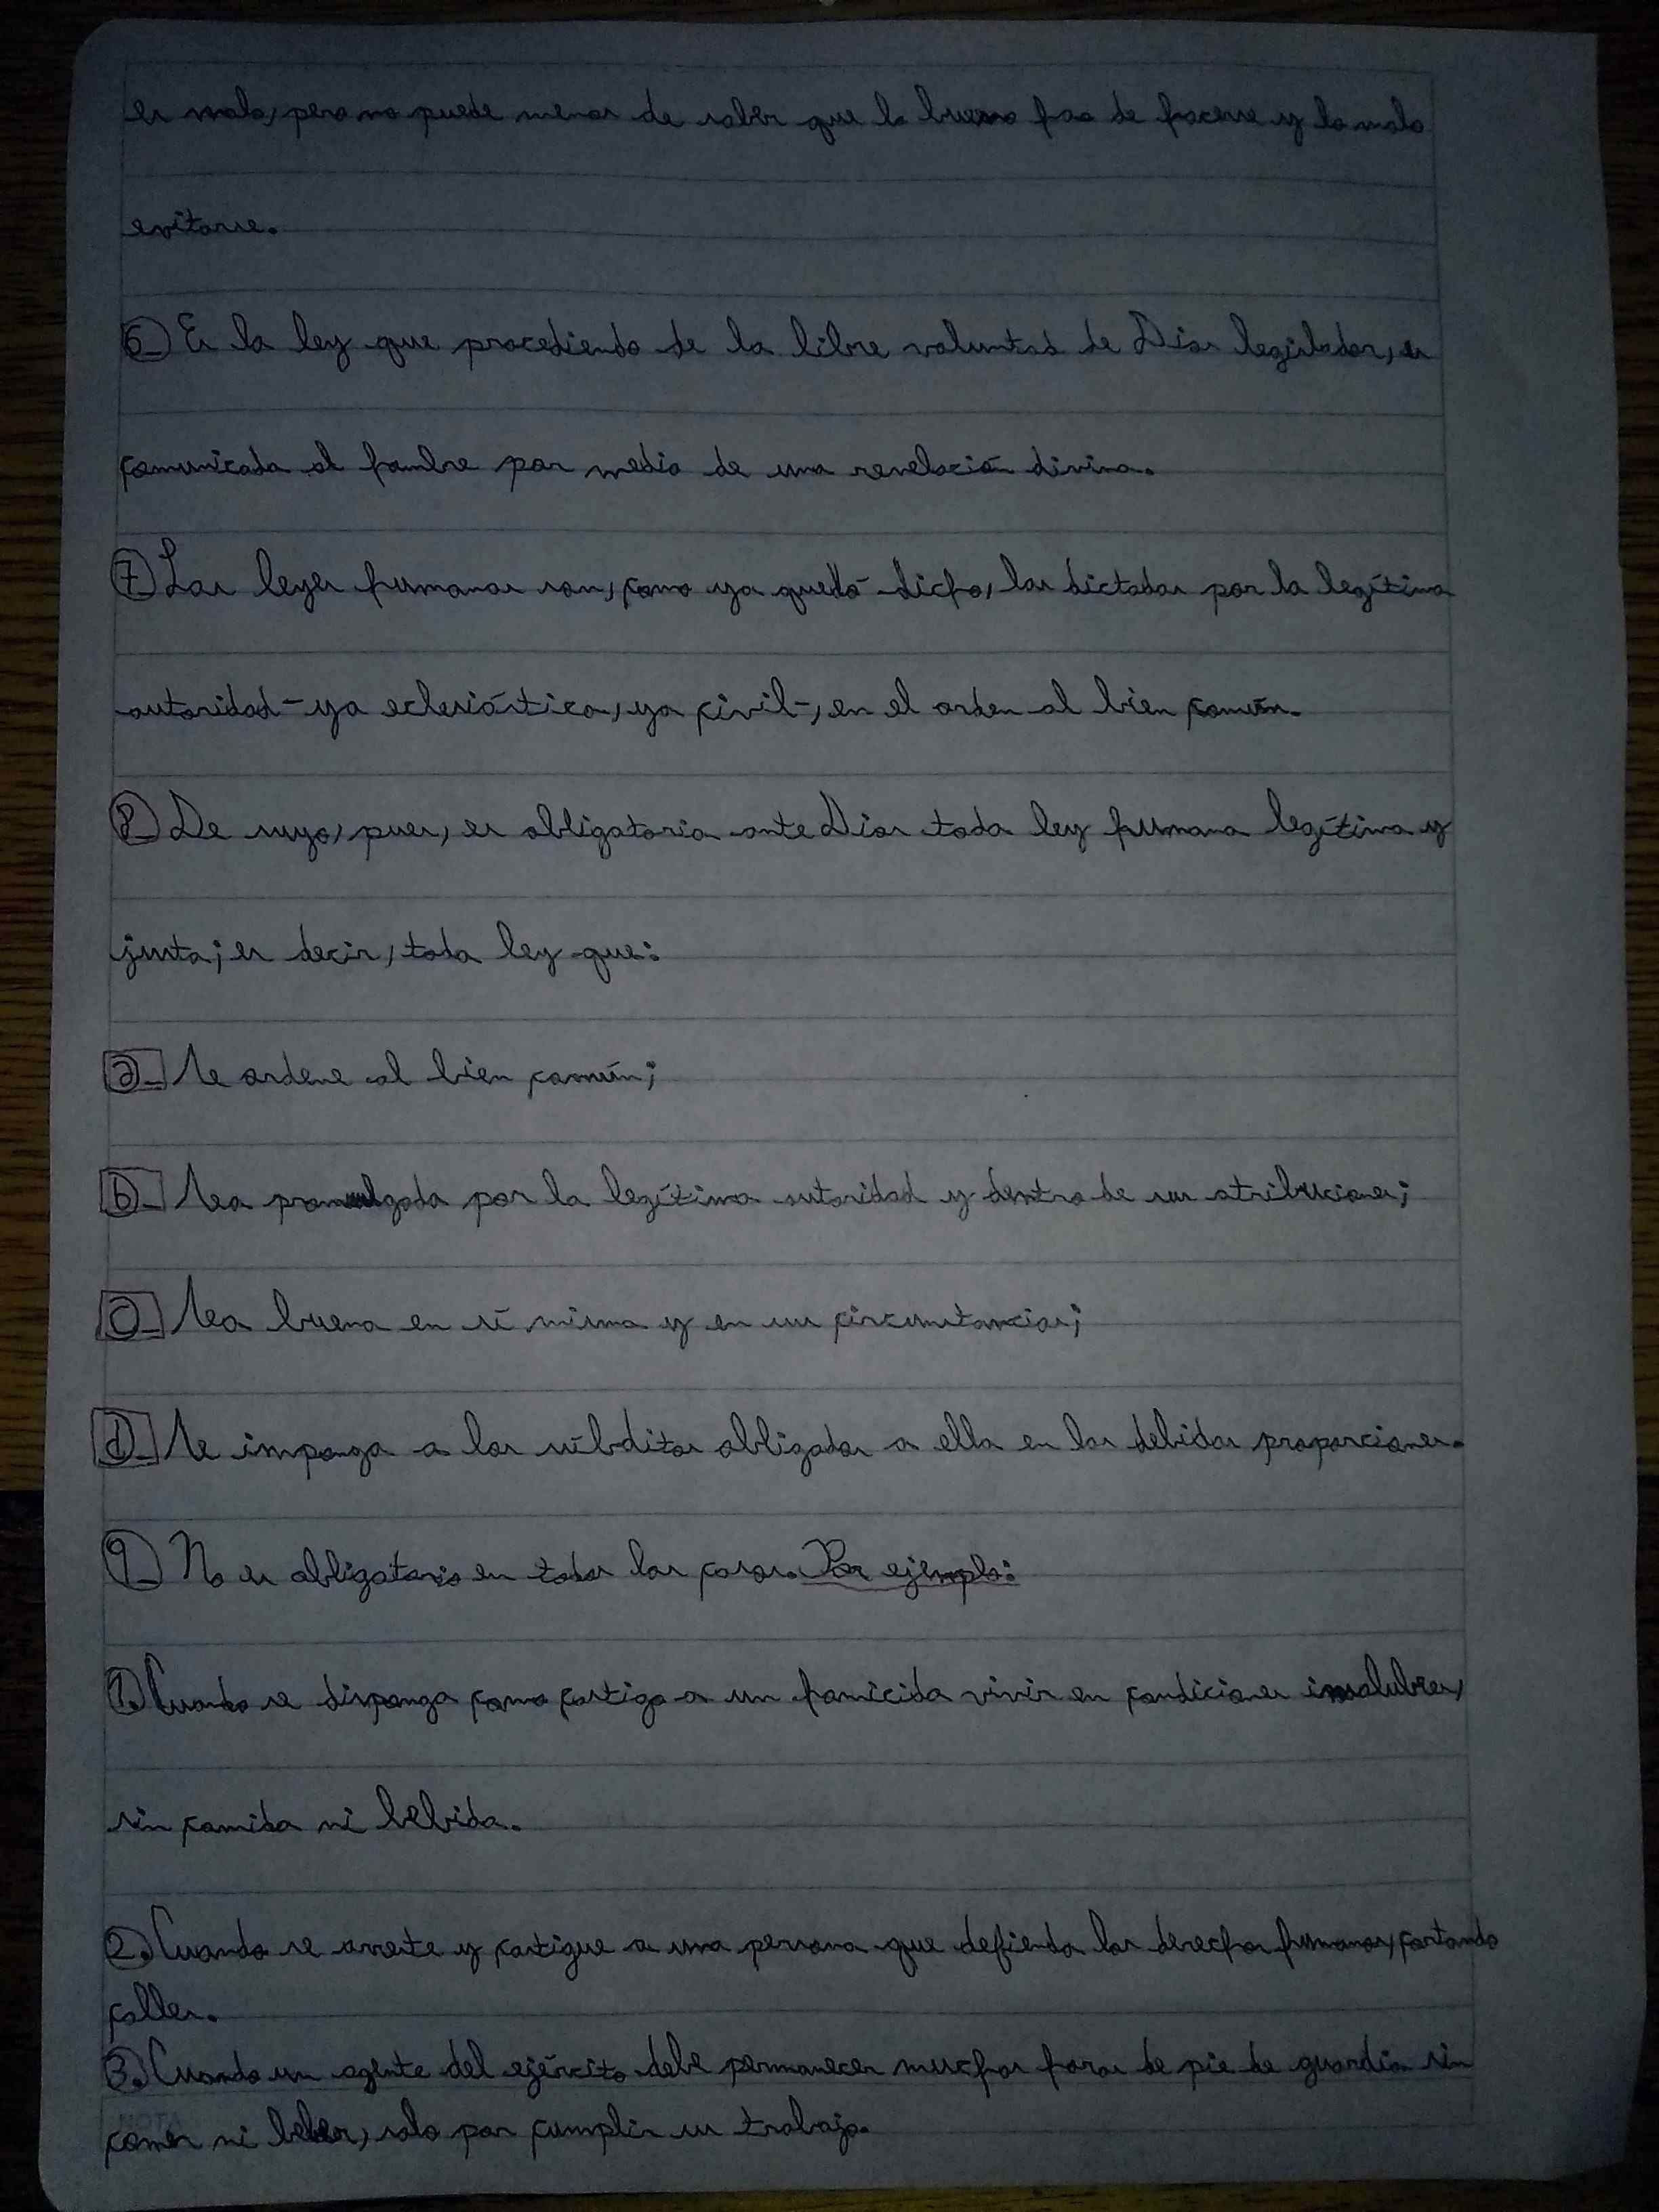 es malo, pero no puede menos de saber que lo bueno ha de hacerse y lo malo
evitarse.
6_ Es la ley que procediendo de la libre voluntad de Dios legislador, es
comunicada al hombre por medio de una revelación divina.
7_ Las leyes humanas son, como ya quedó dicho, las dictadas por la legítima
autoridad - ya eclesiástica, ya civil -, en el orden al bien común.
8_ De suyo, pues, es obligatoria ante Dios toda ley humana legítima y
justa; es decir, toda ley que:
a_ Se ordene al bien común;
b_ Sea promulgada por la legítima autoridad y dentro de sus atribuciones;
c_ Sea buena en sí misma y en sus circunstancias;
d_ Se imponga a los súbditos obligados a ella en las debidas proporciones.
9_ No es obligatorio en todos los casos. Por ejemplo:
1. Cuando se disponga como castigo a un homicida vivir en condiciones insalubres,
sin comida ni bebida.
2. Cuando se arreste y castigue a una persona que defienda los derechos humanos, cortando
calles.
3. Cuando un agente del ejército debe permanecer muchas horas de pie de guardia sin
comer ni beber, solo por cumplir su trabajo.
NOTA